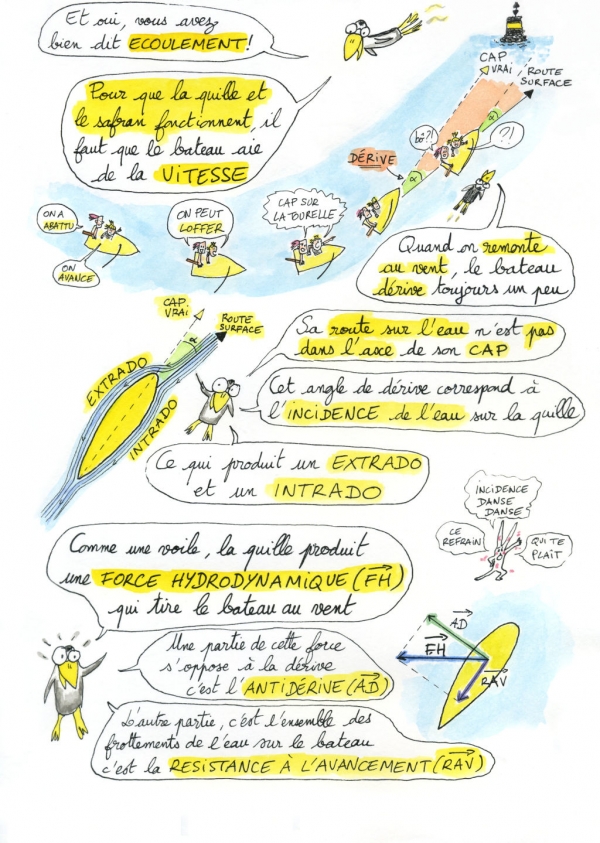 Et oui, vous avez
bien dit ECOULEMENT!
Pour que la quille et
le safran fonctionnent, il
faut que le bateau aie
de la VITESSE
CAP
VRAI
ROUTE
SURFACE
α
bô?!
?!
DÉRIVE
α
ON A
ABATTU
ON
AVANCE
ON PEUT
LOFFER
CAP SUR
LA TOURELLE
Quand on remonte
au vent, le bateau
dérive toujours un peu
CAP
VRAI
ROUTE
SURFACE
α
EXTRADO
INTRADO
Sa route sur l'eau n'est pas
dans l'axe de son CAP
Cet angle de dérive correspond à
l'INCIDENCE de l'eau sur la quille
Ce qui produit un EXTRADO
et un INTRADO
INCIDENCE
DANSE
DANSE
CE
REFRAIN
QUI TE
PLAÎT
Comme une voile, la quille produit
une FORCE HYDRODYNAMIQUE (FH)
qui tire le bateau au vent
Une partie de cette force
s'oppose à la dérive
c'est l'ANTIDÉRIVE (AD)
L'autre partie, c'est l'ensemble des
frottements de l'eau sur le bateau
c'est la RESISTANCE À L'AVANCEMENT (RAV)
AD
FH
RAV